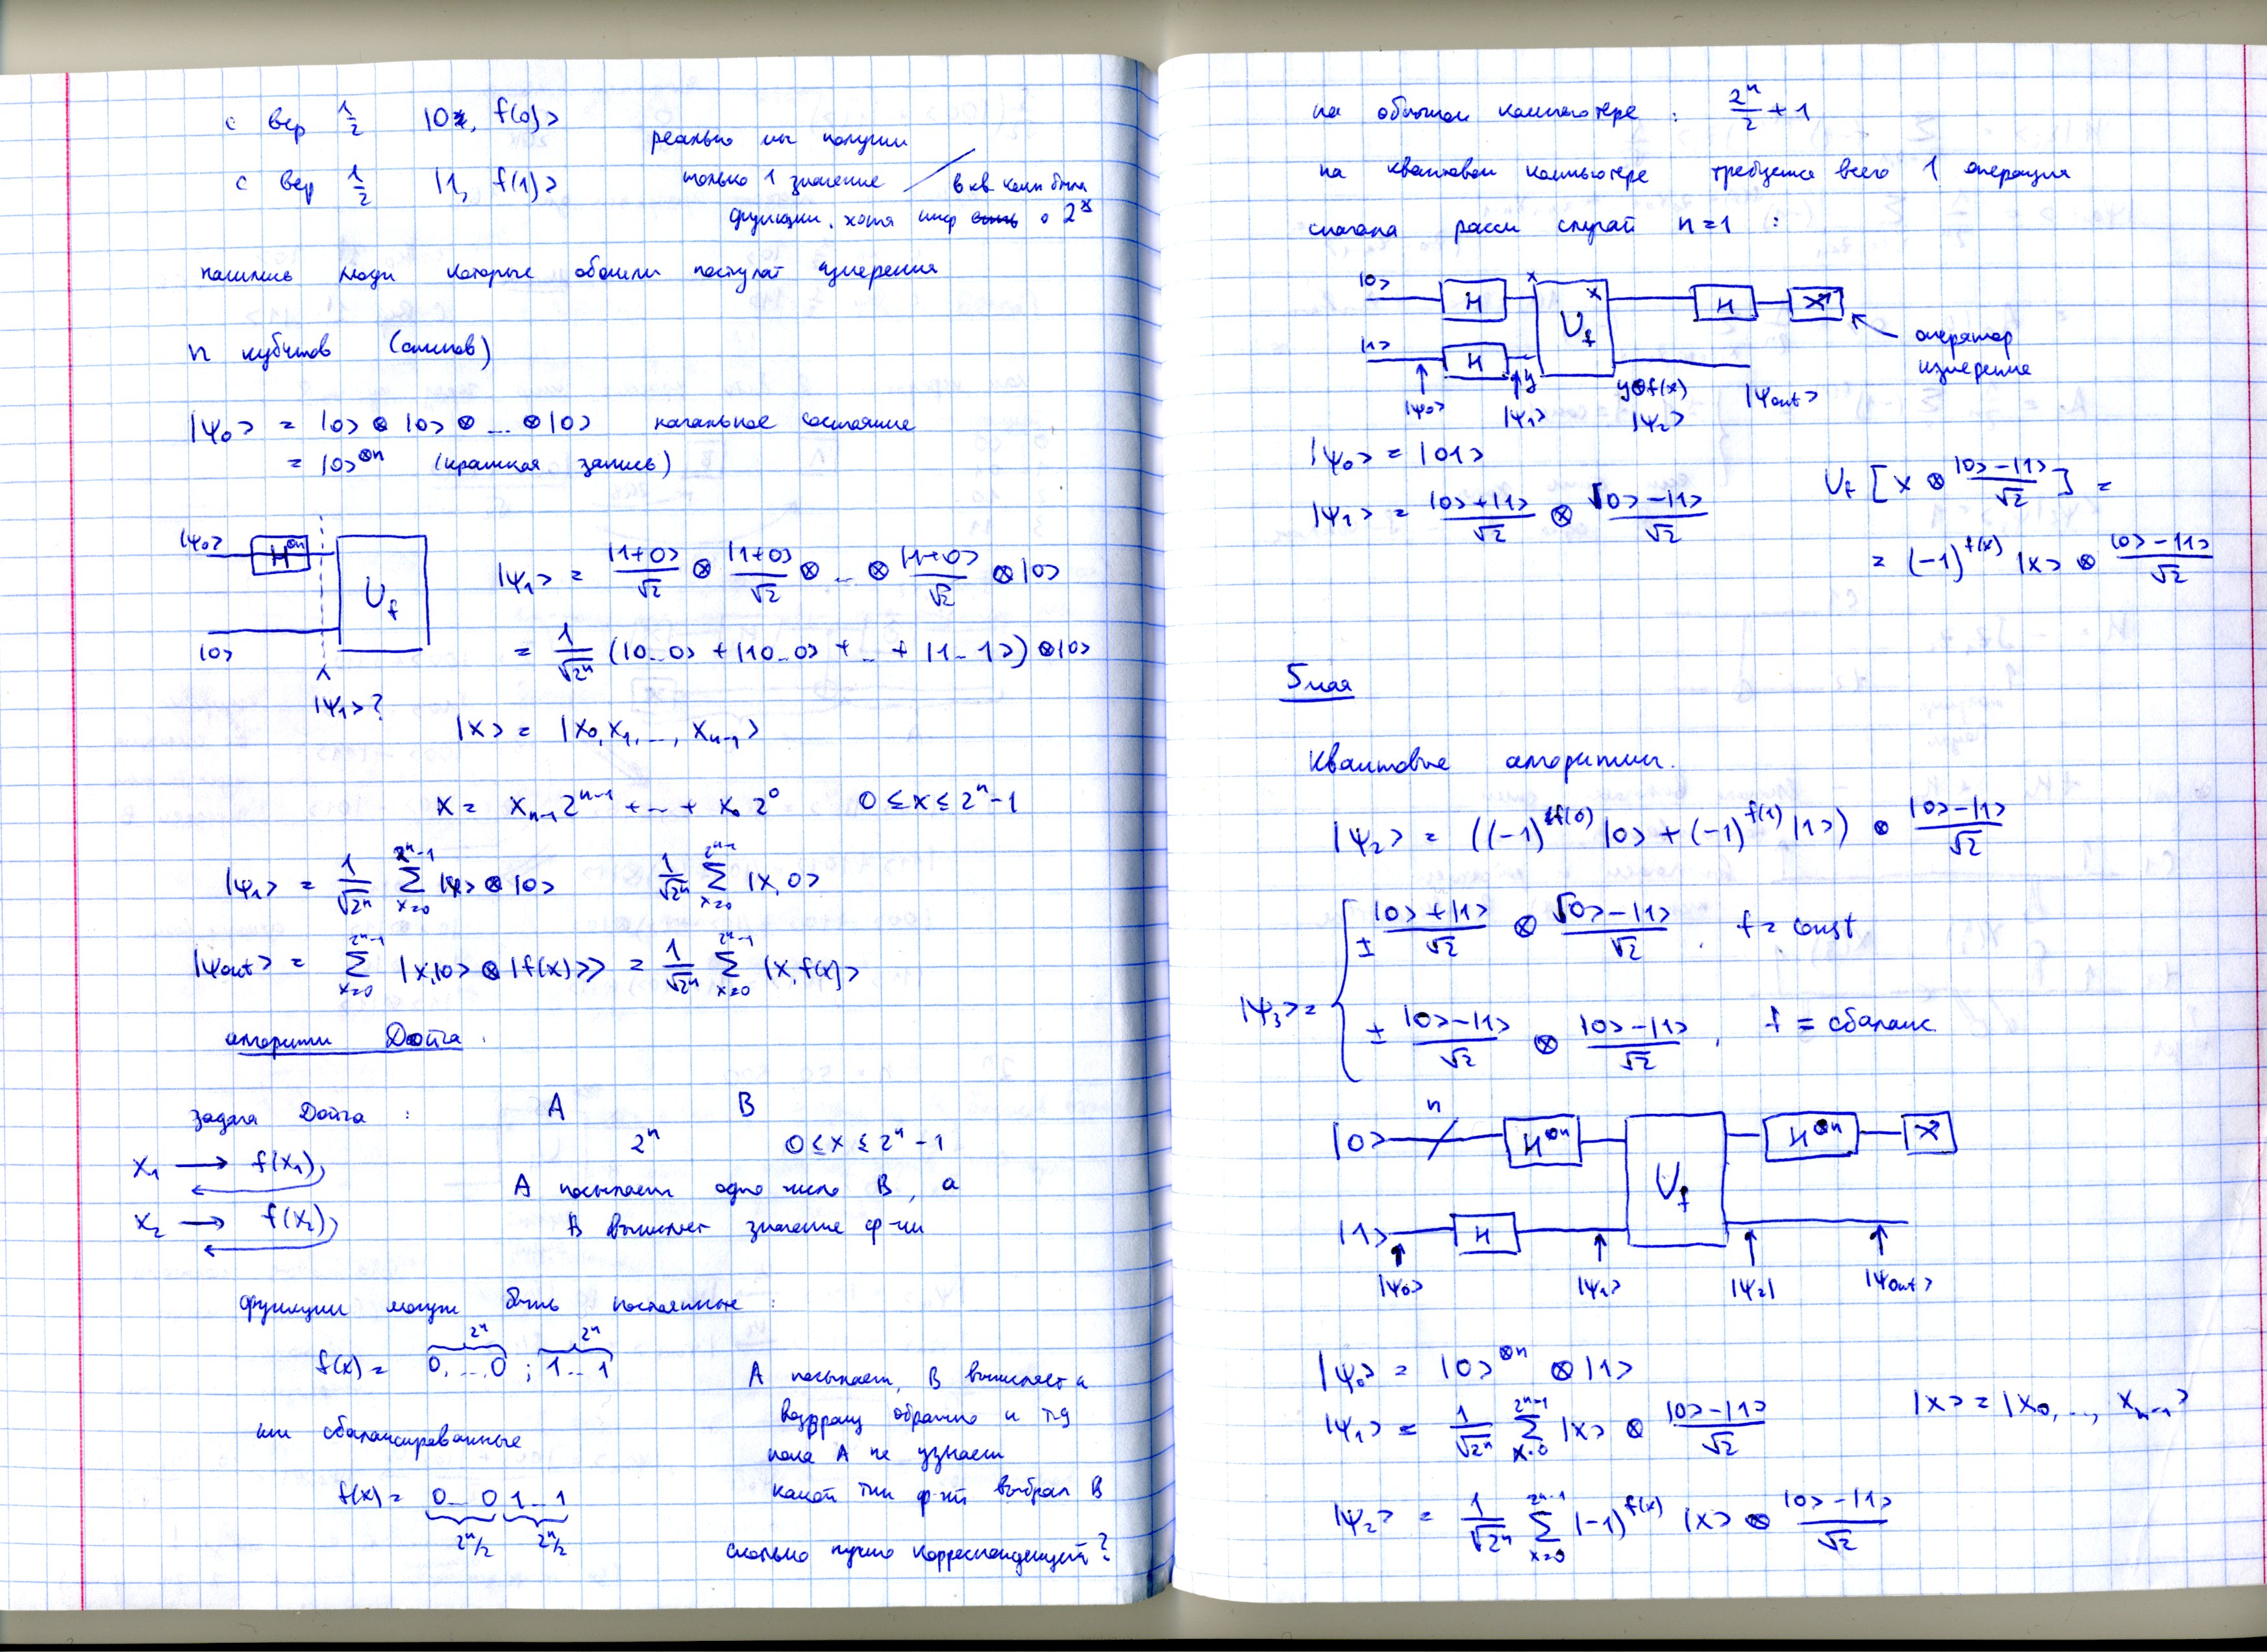 с вер 1/2 |0, f(0)>
с вер 1/2 |1, f(1)>
реально мы получим
только 1 значение
функции, хотя инф о 2^x
в кв комп была
нашлись люди которые обошли постулат измерения
n кубитов (спинов)
|ψ₀> = |0> ⊗ |0> ⊗ ... ⊗ |0> начальное состояние
= |0>^⊗n (краткая запись)
|ψ₀> H^⊗n U_f
|0>
|ψ₁>?
|ψ₁> = |1+0>/√2 ⊗ |1+0>/√2 ⊗ ... ⊗ |1+0>/√2 ⊗ |0>
= 1/√2ⁿ (|0...0> + |10...0> + ... + |1...1>) ⊗ |0>
|x> = |x₀, x₁, ..., xₙ₋₁>
x = xₙ₋₁ 2ⁿ⁻¹ + ... + x₀ 2⁰ 0 ≤ x ≤ 2ⁿ-1
|ψ₁> = 1/√2ⁿ Σ_{x=0}^{2ⁿ-1} |x> ⊗ |0> 1/√2ⁿ Σ_{x=0}^{2ⁿ-1} |x, 0>
|ψout> = Σ_{x=0}^{2ⁿ-1} |x,|0> ⊗ |f(x)>> = 1/√2ⁿ Σ_{x=0}^{2ⁿ-1} |x, f(x)>
алгоритм Дойча.
задача Дойча : A B
2ⁿ 0 ≤ x ≤ 2ⁿ-1
x₁ → f(x₁)
x₂ → f(x₂)
A посылает одно число B, а
B вычисляет значение ф-ии
функции могут быть постоянные :
f(x) = 0, ..., 0 ; 1...1
2ⁿ 2ⁿ
или сбалансированные
f(x) = 0...0 1...1
2ⁿ/2 2ⁿ/2
A посылает, B вычисляет и
возвращ обратно и тд
пока A не узнает
какой тип ф-ии выбрал B
сколько нужно корреспонденций?
на обычном компьютере : 2ⁿ/2 + 1
на квантовом компьютере требуется всего 1 операция
сначала рассм случай n=1 :
|0> H x U_f x H
|1> H y y⊕f(x)
|ψ₀> |ψ₁> |ψ₂> |ψout>
оператор
измерения
|ψ₀> = |01>
|ψ₁> = |0>+|1>/√2 ⊗ |0>-|1>/√2
U_f [x ⊗ |0>-|1>/√2] =
= (-1)^f(x) |x> ⊗ |0>-|1>/√2
5 мая
Квантовые алгоритмы.
|ψ₂> = ((-1)^f(0) |0> + (-1)^f(1) |1>) ⊗ |0>-|1>/√2
|ψ₃> = { ± |0>+|1>/√2 ⊗ |0>-|1>/√2, f = const
± |0>-|1>/√2 ⊗ |0>-|1>/√2, f = сбаланс
|0> n H^⊗n U_f H^⊗n
|1> H
|ψ₀> |ψ₁> |ψ₂| |ψout>
|ψ₀> = |0>^⊗n ⊗ |1>
|ψ₁> = 1/√2ⁿ Σ_{x=0}^{2ⁿ-1} |x> ⊗ |0>-|1>/√2 |x> = |x₀, ..., xₙ₋₁>
|ψ₂> = 1/√2ⁿ Σ_{x=0}^{2ⁿ-1} (-1)^f(x) |x> ⊗ |0>-|1>/√2